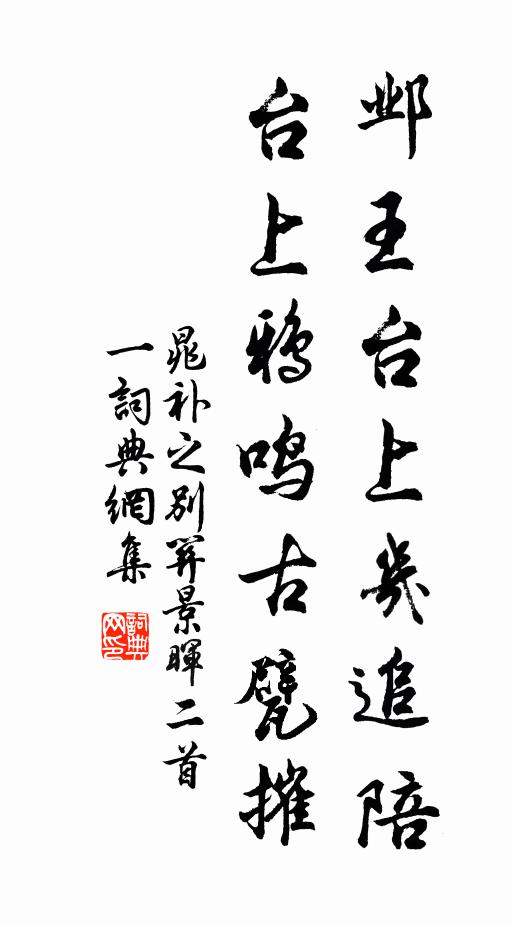 邺王台上幾追陪
台上鸦鸣古甓摧
晁补之别關景暉二首
一詞典網集
詞典网印